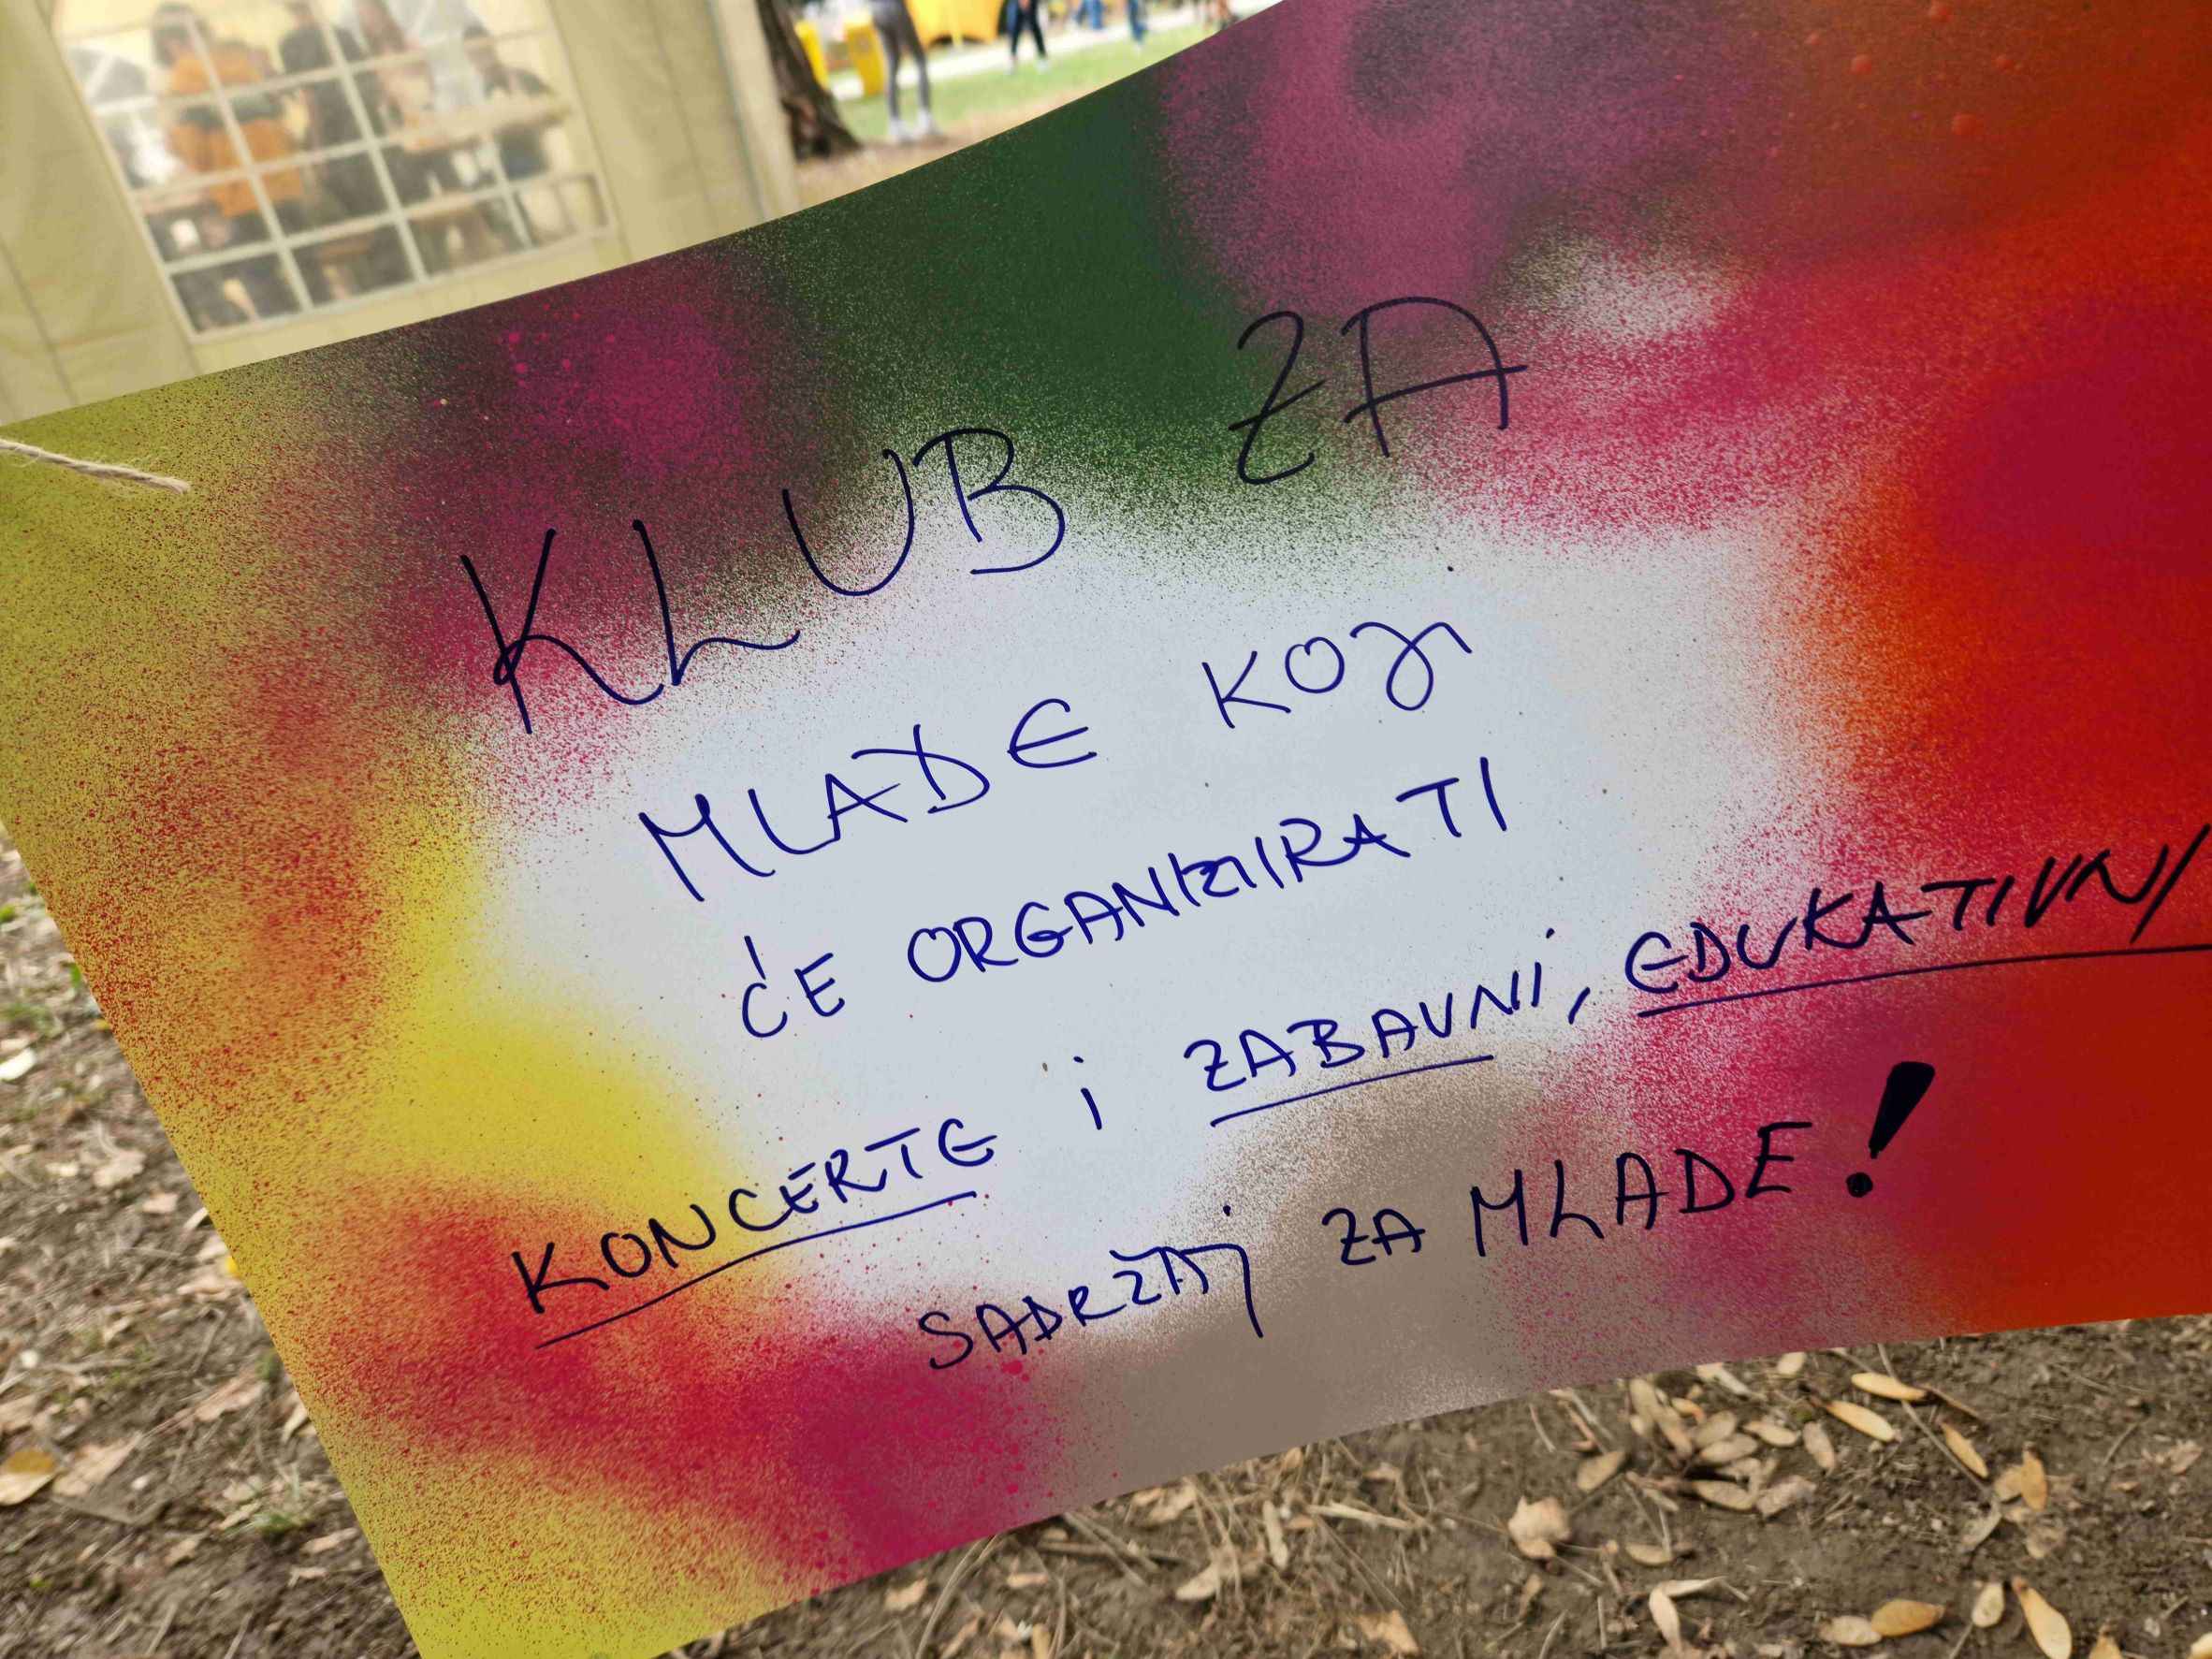 KLUB ZA
MLADE KOJI
ĆE ORGANIZIRATI
KONCERTE i ZABAVNI, EDUKATIVNI
SADRŽAJ ZA MLADE!